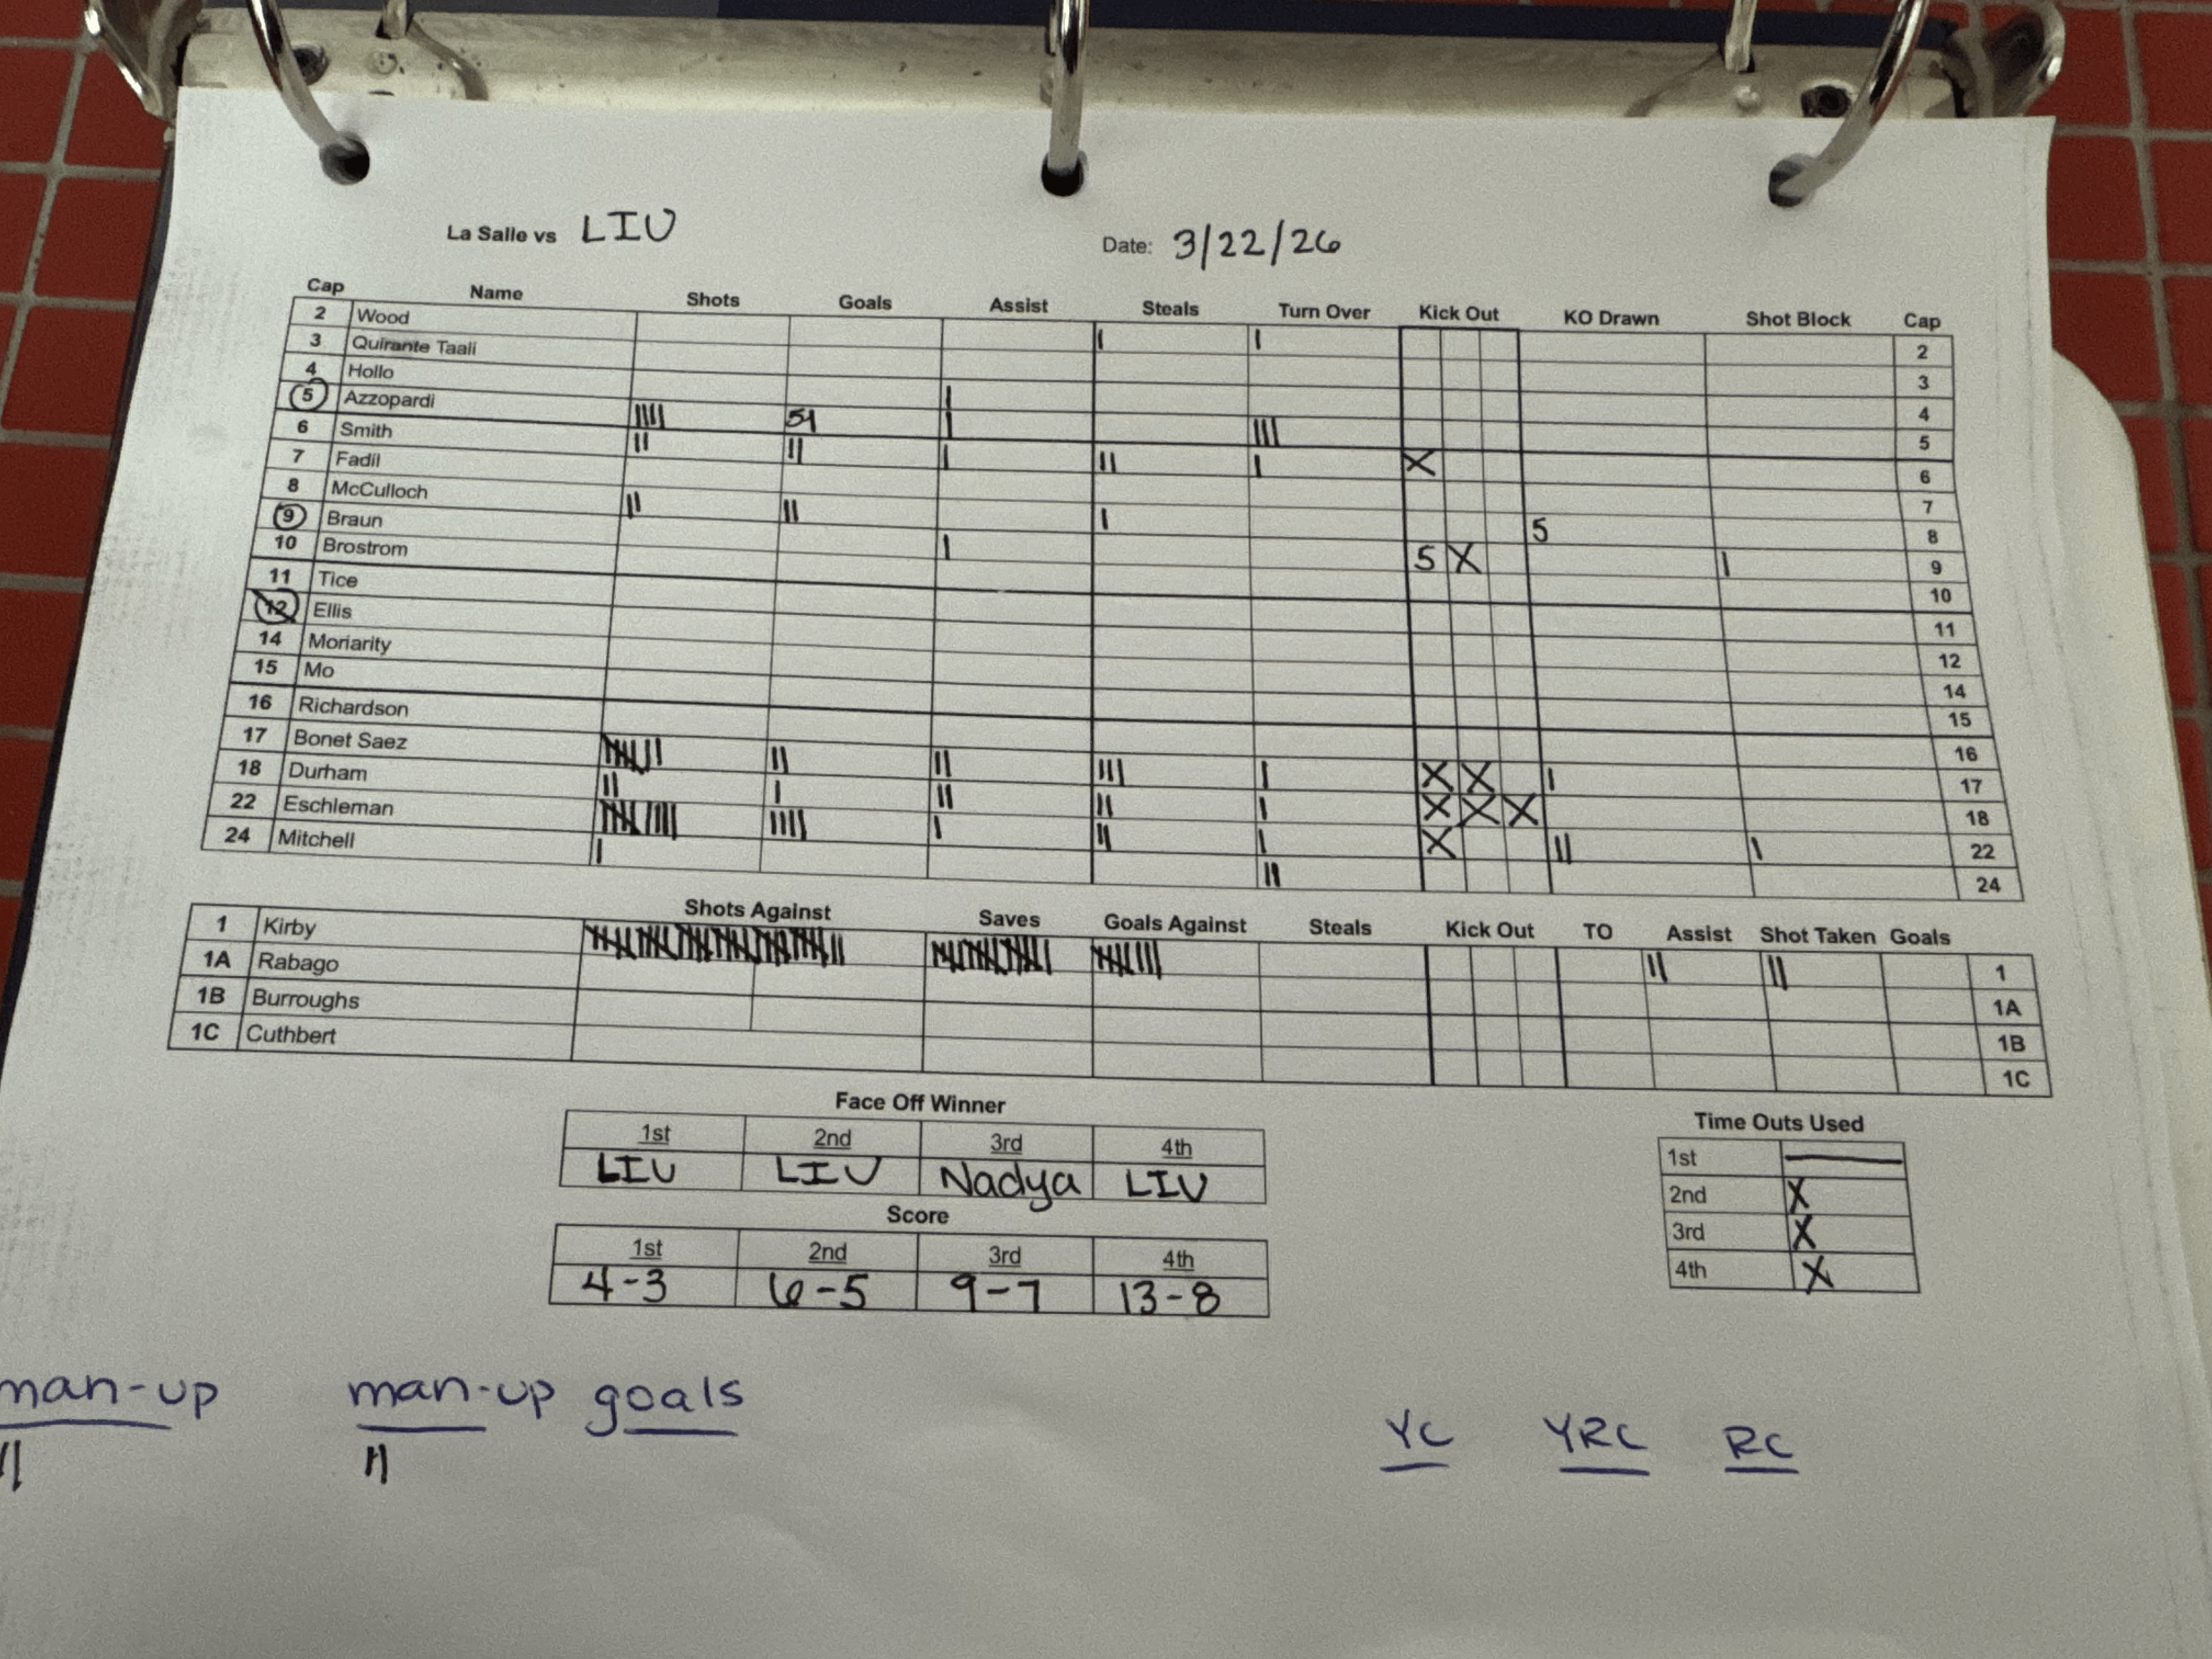 La Salle vs LIU Date: 3/22/26
Cap Name Shots Goals Assist Steals Turn Over Kick Out KO Drawn Shot Block Cap
2 Wood | | 2
3 Quirante Taali 3
4 Hollo | 4
5 Azzopardi |||| 51 | ||| 5
6 Smith || || | || | X 6
7 Fadil 7
8 McCulloch || || | 5 8
9 Braun | 5 X | 9
10 Brostrom 10
11 Tice 11
12 Ellis 12
14 Moriarity 14
15 Mo 15
16 Richardson 16
17 Bonet Saez || || ||| | X X | 17
18 Durham || | || || | X X X 18
22 Eschleman |||| | || | X || | 22
24 Mitchell | || 24
Shots Against Saves Goals Against Steals Kick Out TO Assist Shot Taken Goals
1 Kirby || || 1
1A Rabago 1A
1B Burroughs 1B
1C Cuthbert 1C
Face Off Winner
1st 2nd 3rd 4th
LIU LIU Nadya LIU
Score
1st 2nd 3rd 4th
4-3 6-5 9-7 13-8
Time Outs Used
1st —
2nd X
3rd X
4th X
man-up man-up goals YC YRC RC
|| ||